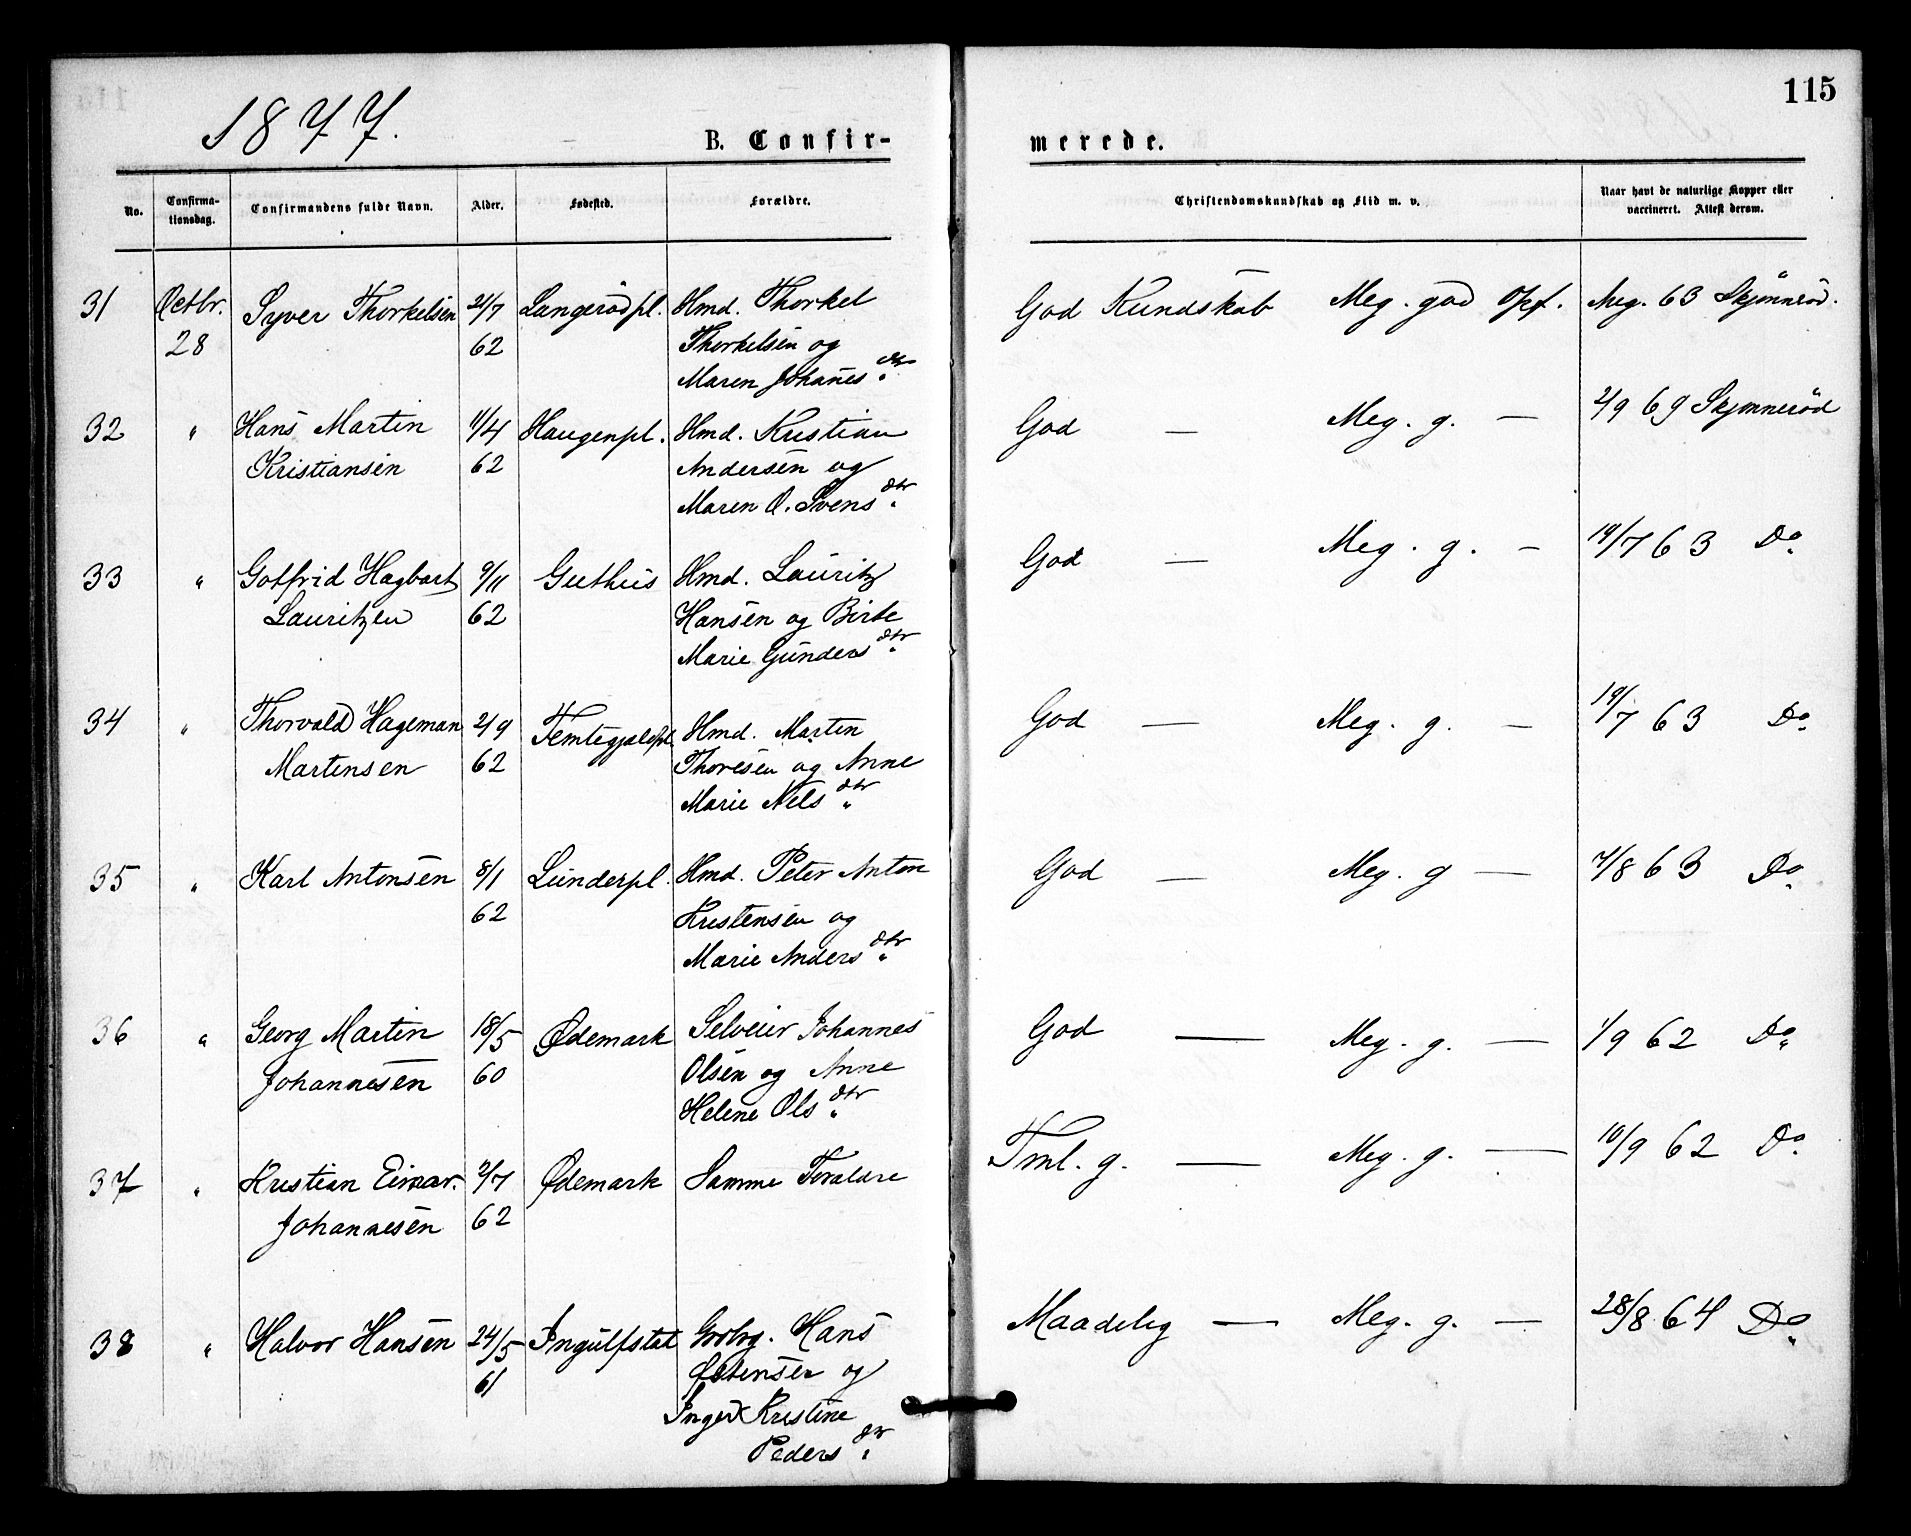 115
1877.
B. Confir-
merede.
No.
Confirma-
tionsdag.
Confirmandens fulde Navn.
Alder.
Fødested.
Forældre.
Christendomskundskab og Flid m. v.
Naar havt de naturlige Kopper eller
vaccineret. Attest derom.
31 Octbr. Syver Thorkelsen 21/7 Langerødpl. Hmd. Thorkel God Kundskab Meg. god Opf. Aug. 63 Skjønnerød.
28 62 Thorkelsen og
Maren Johanes dtr
32 " Hans Martin 11/4 Haugenpl. Hmd. Kristian God — Meg. g. — 2/9 69 Skjønnerød
Kristiansen 62 Andersen og
Maren O. Svens dtr
33 " Gotfrid Hagbart 9/11 Guthus Hmd. Lauritz God — Meg. g. — 19/7 63 Do
Lauritzen 62 Hansen og Birte
Marie Gunders dtr
34 " Thorvald Hageman 2/9 Hmd. Martin God — Meg. g. — 19/7 63 Do
Martensen 62 Thoresen og Anne
Marie Nels dtr
35 " Karl Antonsen 8/1 Lunderpl. Hmd. Peter Anton God — Meg. g — 7/8 63 Do
62 Kristensen og
Marie Anders dtr
36 " Georg Martin 18/5 Ødemark Selveier Johannes God — Meg. g. — 1/9 62 Do
Johannesen 60 Olsen og Anne
Helene Ols dtr
37 " Kristian Einar. 2/7 Ødemark Samme Foraldre Tml. g. — Meg. g. — 10/9 62 Do
Johannesen 62
38 " Halvor Hansen 24/5 Ingulfstat Grbrg. Hans Maadelig — Meg. g. — 28/8 64 Do
61 og
Inger Kristine
Peders dtr